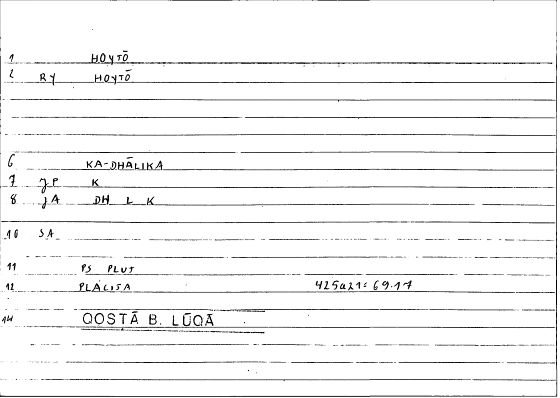 1 HOYTŌ
2 RY HOYTŌ
6 KA-DHĀLIKA
7 JP K
8 JA DH L K
10 SA
11 PS PLUT
12 PLACITA 425a21 = 69.17
14 QOSṬĀ B. LŪQĀ